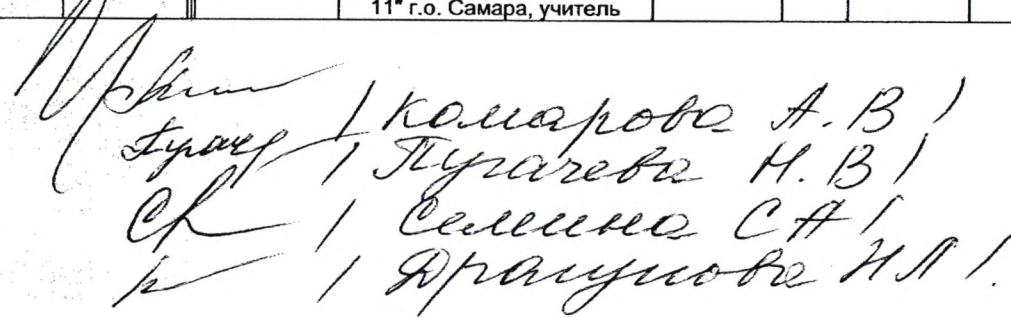 11" г.о. Самара, учитель
/ Комарова А. В /
/ Пугачева Н. В /
/ Семина С А /
/ Драгунова Н Л /.